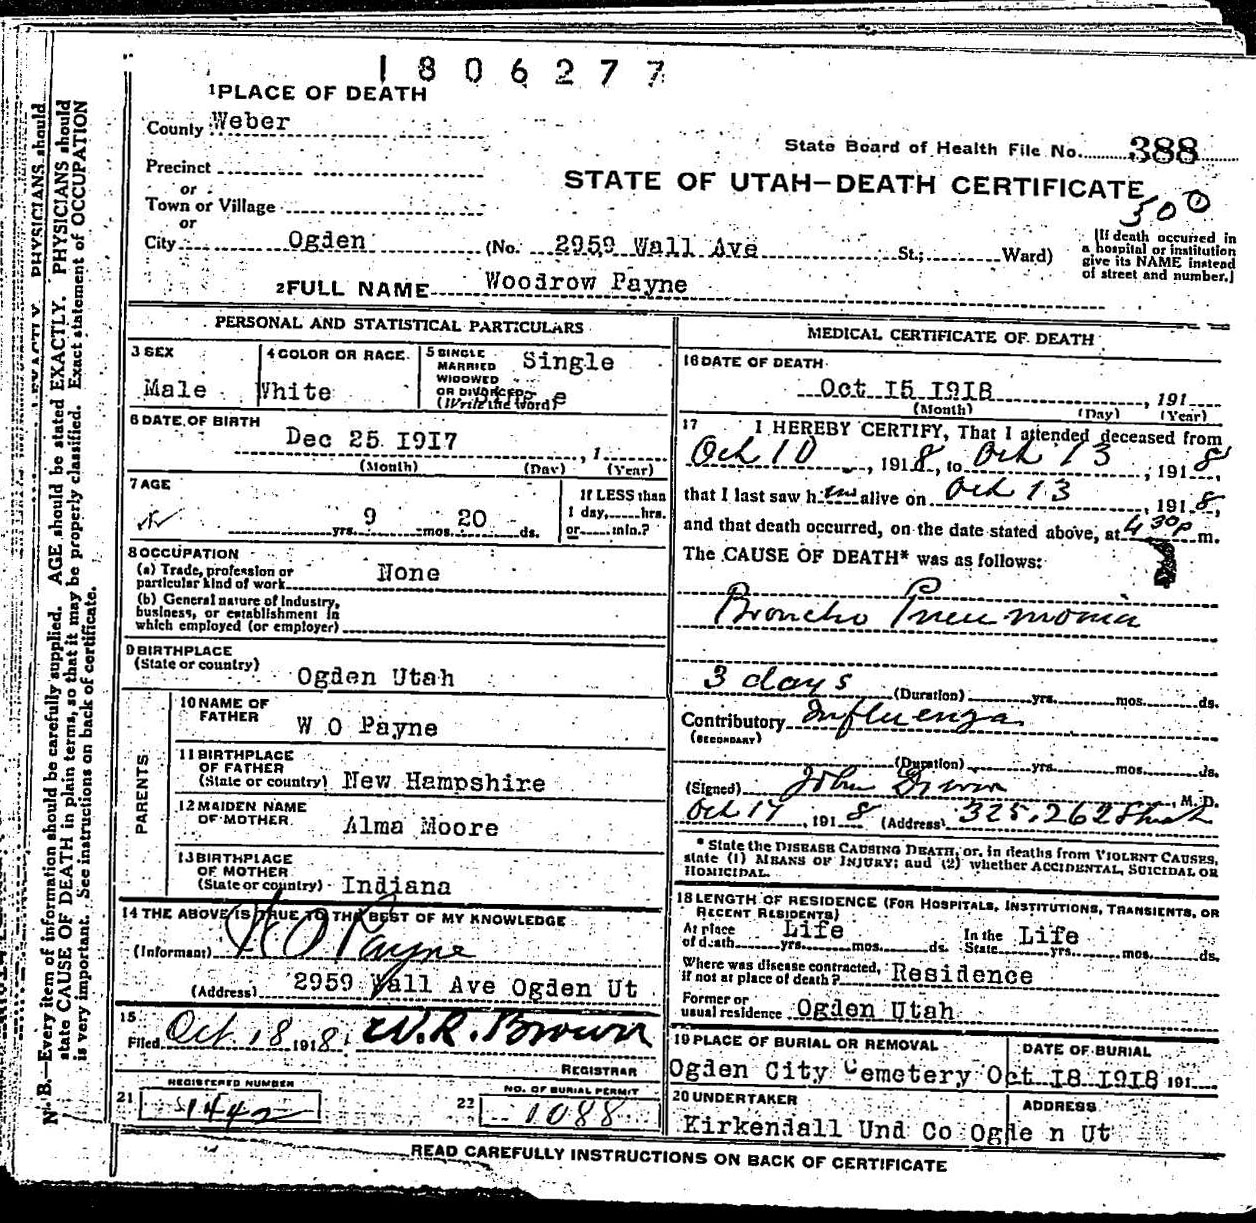 1806277
1 PLACE OF DEATH
County Weber
State Board of Health File No. 388
Precinct
or
STATE OF UTAH—DEATH CERTIFICATE
Town or Village
500
or
City Ogden (No. 2959 Wall Ave St.; Ward)
[If death occurred in a hospital or institution give its NAME instead of street and number.]
2 FULL NAME Woodrow Payne
PERSONAL AND STATISTICAL PARTICULARS
3 SEX
Male
4 COLOR OR RACE
White
5 SINGLE MARRIED WIDOWED OR DIVORCED (Write the word)
Single
6 DATE OF BIRTH
Dec 25 1917, 1
(Month) (Day) (Year)
7 AGE
yrs. 9 mos. 20 ds.
If LESS than
1 day, hrs.
or min.?
8 OCCUPATION
(a) Trade, profession or
particular kind of work None
(b) General nature of Industry,
business, or establishment in
which employed (or employer)
9 BIRTHPLACE
(State or country) Ogden Utah
PARENTS
10 NAME OF
FATHER W O Payne
11 BIRTHPLACE
OF FATHER
(State or country) New Hampshire
12 MAIDEN NAME
OF MOTHER Alma Moore
13 BIRTHPLACE
OF MOTHER
(State or country) Indiana
14 THE ABOVE IS TRUE TO THE BEST OF MY KNOWLEDGE
(Informant) W O Payne
(Address) 2959 Wall Ave Ogden Ut
15
Filed Oct. 18 1918. W. R. Brown
REGISTRAR
REGISTERED NUMBER
21 1442
NO. OF BURIAL PERMIT
22 1088
MEDICAL CERTIFICATE OF DEATH
16 DATE OF DEATH
Oct 15 1918, 191
(Month) (Day) (Year)
17 I HEREBY CERTIFY, That I attended deceased from
Oct 10, 1918, to Oct 13, 1918,
that I last saw him alive on Oct 13 1918,
and that death occurred, on the date stated above, at 4 30 P m.
The CAUSE OF DEATH* was as follows:
Broncho Pneumonia
3 days (Duration) yrs. mos. ds.
Contributory Influenza
(SECONDARY)
(Duration) yrs. mos. ds.
(Signed) John, M. D.
Oct 17, 1918 (Address) 325.26 2 Street
* State the DISEASE CAUSING DEATH, or, in deaths from VIOLENT CAUSES,
state (1) MEANS OF INJURY; and (2) whether ACCIDENTAL, SUICIDAL OR
HOMICIDAL.
18 LENGTH OF RESIDENCE (FOR HOSPITALS, INSTITUTIONS, TRANSIENTS, OR
RECENT RESIDENTS)
At place
of death Life yrs. mos. ds.
In the
State Life yrs. mos. ds.
Where was disease contracted,
if not at place of death? Residence
Former or
usual residence Ogden Utah
19 PLACE OF BURIAL OR REMOVAL
Ogden City Cemetery
DATE OF BURIAL
Oct 18 1918 191
20 UNDERTAKER
Kirkendall Und Co
ADDRESS
Ogde n Ut
READ CAREFULLY INSTRUCTIONS ON BACK OF CERTIFICATE
N. B.—Every item of information should be carefully supplied. AGE should be stated EXACTLY. PHYSICIANS should
state CAUSE OF DEATH in plain terms, so that it may be properly classified. Exact statement of OCCUPATION
is very important. See instructions on back of certificate.